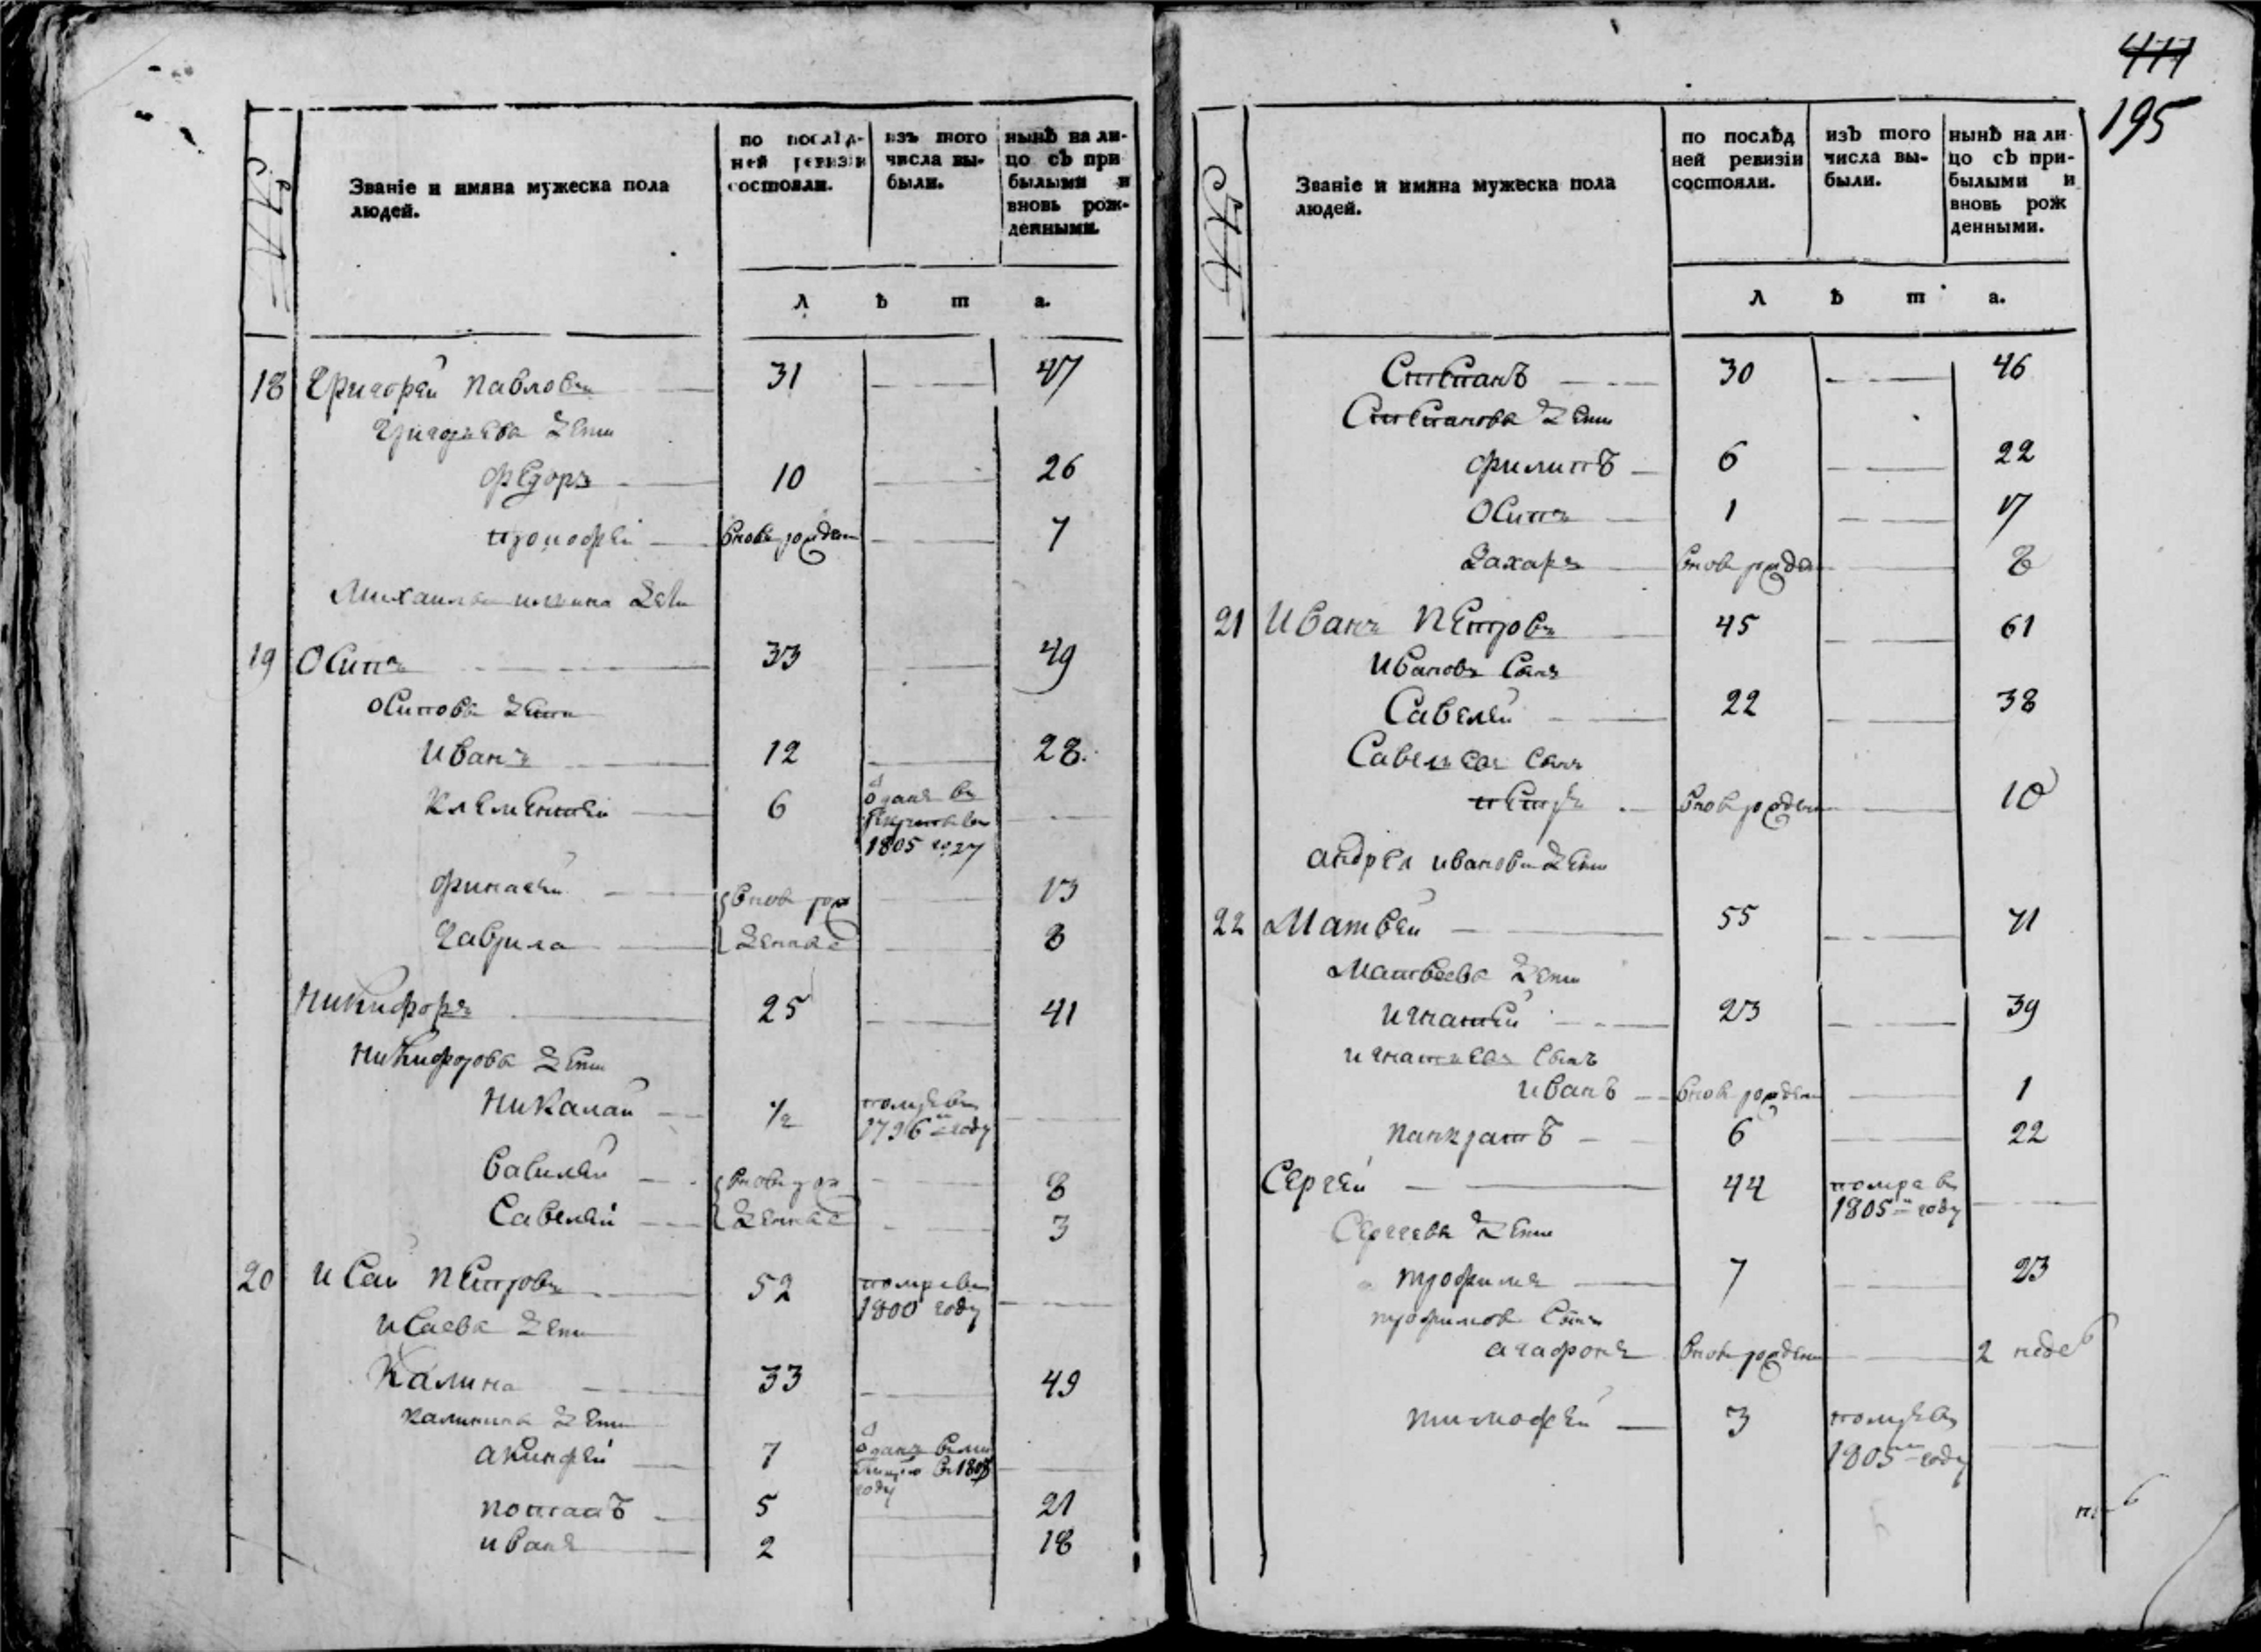 477
195
№
Званіе и имяна мужеска пола
людей.
по послѣд-
ней ревизіи
состояли.
изъ того
числа вы-
были.
нынѣ на ли-
цо съ при
былыми и
вновь рож-
денными.
л ѣ т а.
18 Григорей Павловъ 31 47
Григорьева дети
Федоръ 10 26
вновь рожден 7
Михаила Ильина дети
19 Осипъ 33 49
Осипова дети
Иванъ 12 28.
Клементей 6 отданъ въ
рекруты въ
1805 году
13
вновь рож
Гаврила денные 8
Никифоръ 25 41
Никифорова дети
Николай 1/2 помре въ
1796 году
Вавилей вновь рож 8
Савелей денные 3
20 Исай Петровъ 52 помре въ
1800 году
Исаева дети
Калина 33 49
Калинина дети
Акинфей 7 отданъ в ми
лицию въ 1807
году
Потапъ 5 21
Иванъ 2 18
№
Званіе и имяна мужеска пола
людей.
по послѣд
ней ревизіи
состояли.
изъ того
числа вы-
были.
нынѣ на ли-
цо съ при-
былыми и
вновь рож
денными.
л ѣ т а.
Степанъ 30 46
Степанова дети
Филипъ 6 22
Осипъ 1 17
Захаръ вновь рожден 8
21 Иванъ Петровъ 45 61
Ивановъ сынъ
Савелей 22 38
Савельевъ сынъ
Петръ вновь рожден 10
Андрея Иванова дети
22 Матвей 55 71
Матвеева дети
Игнатей 23 39
Игнатьевъ сынъ
Иванъ вновь рожден 1
Панкратъ 6 22
Сергей 44 помре въ
1805м году
Сергеева дети
Трофимъ 7 23
Трофимов сынъ
Агафонъ вновь рожден 2 неде
Тимофей 3 помре въ
1805м году